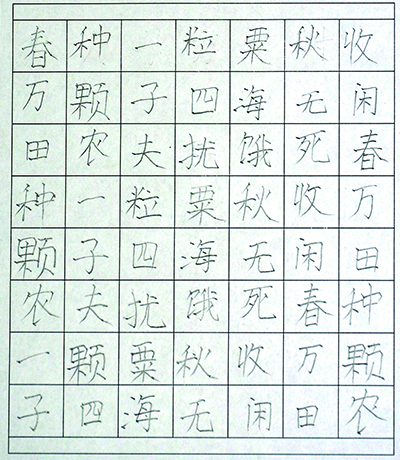 春种一粒粟秋收
万颗子四海无闲
田农夫扰饿死春
种一粒粟秋收万
颗子四海无闲田
农夫扰饿死春种
一颗粟秋收万颗
子四海无闲田农